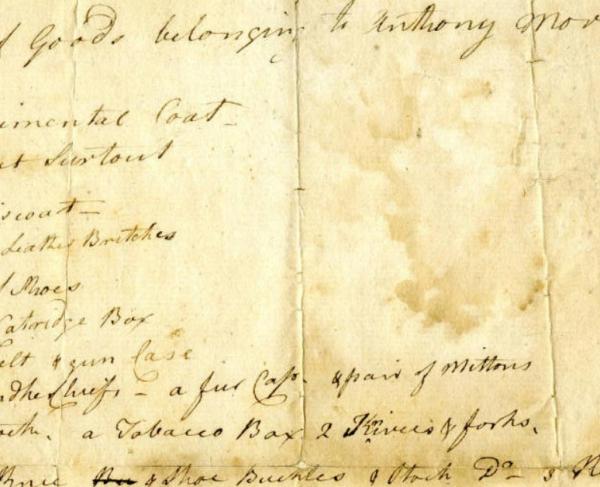 f Goods belonging to Anthony Mor
imental Coat
ut Surtout
iscoat
Leather Britches
f Shoes
Catridge Box
elt & gun Case
ndkechiefs - a fur Cap. & pair of Mittons
a Tobacco Box 2 Knives & forks.
Knee & Shoe Buckles & Stock Do 3